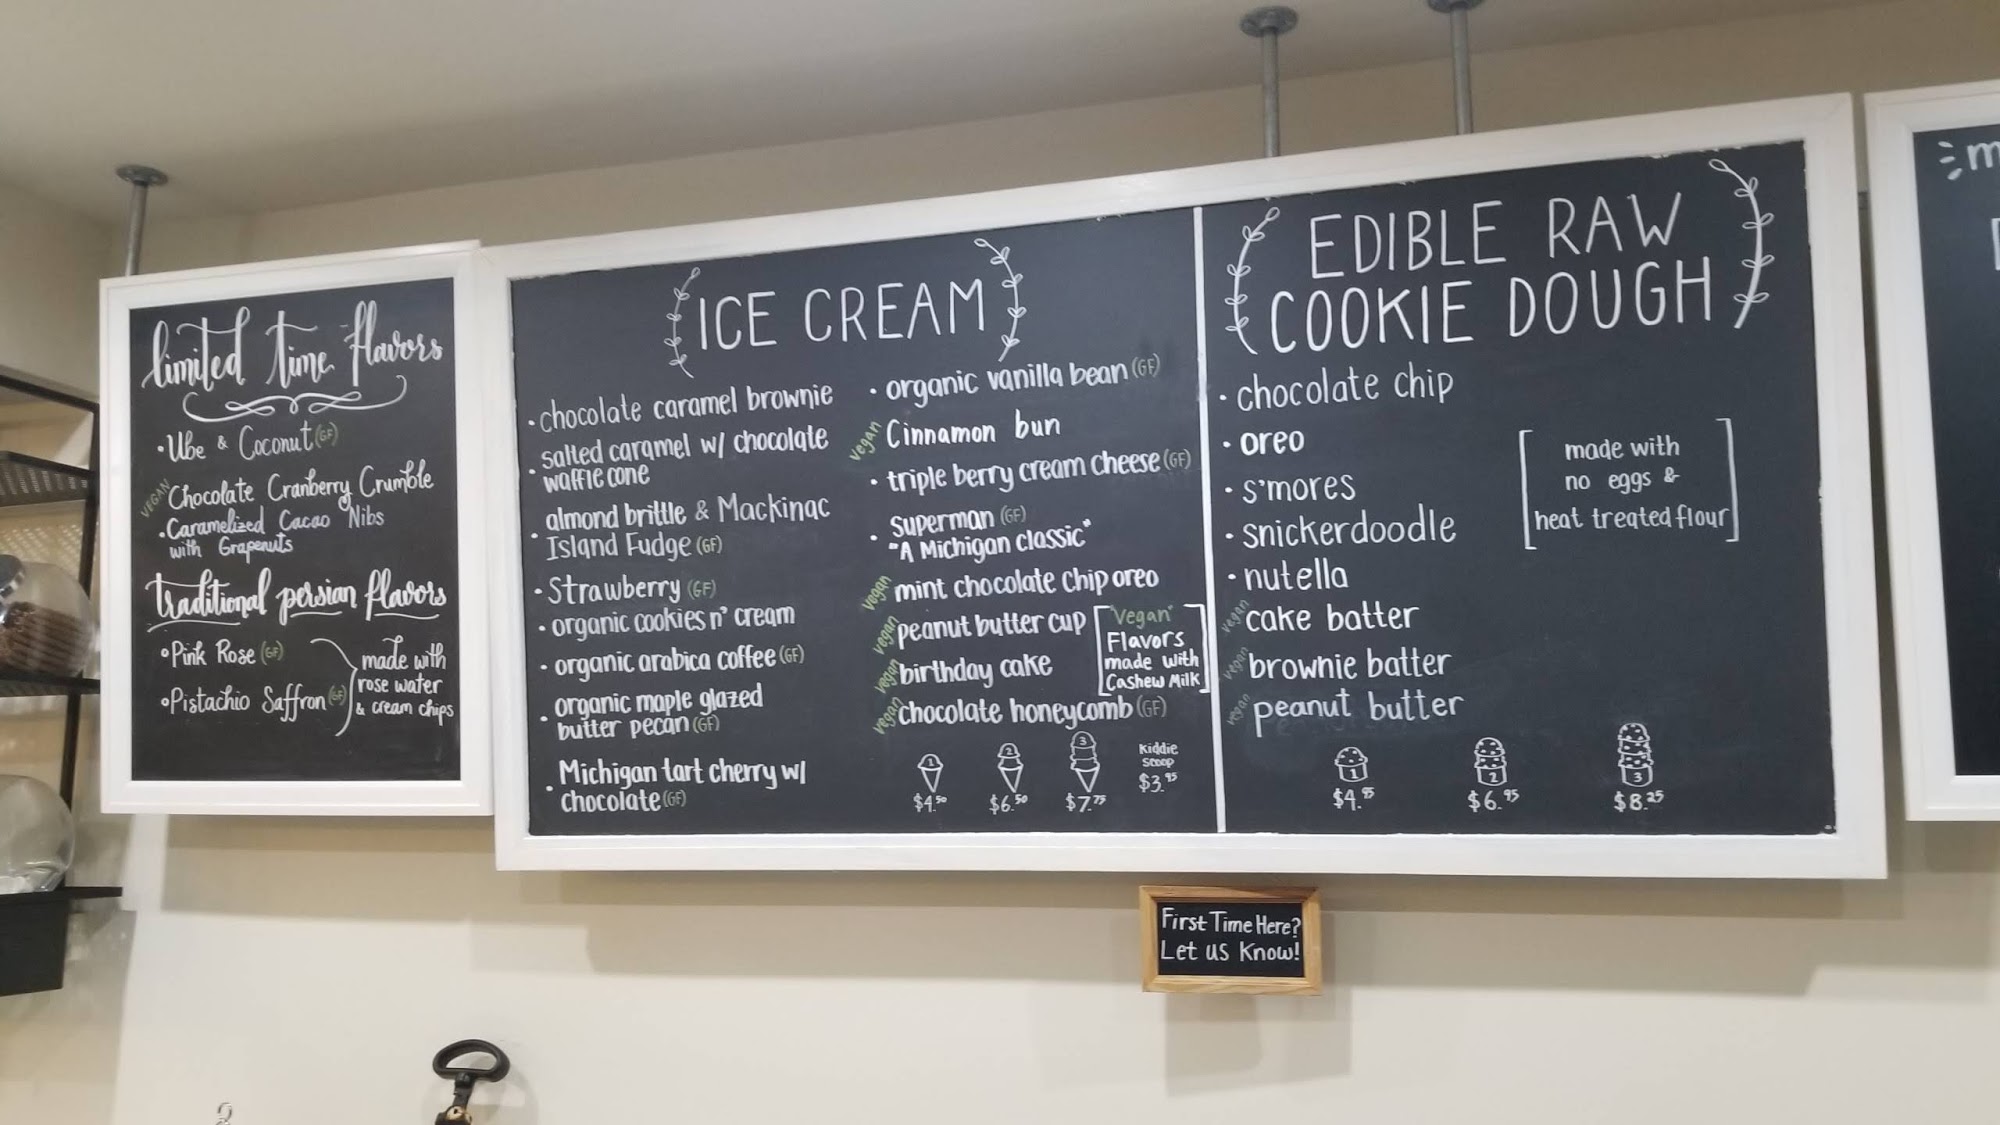 limited time flavors
•Ube & Coconut (GF)
VEGAN Chocolate Cranberry Crumble
•Caramelized Cacao Nibs
with Grapenuts
traditional persian flavors
•Pink Rose (GF)
•Pistachio Saffron (GF)
made with
rose water
& cream chips
ICE CREAM
•chocolate caramel brownie
•salted caramel w/ chocolate
waffle cone
•almond brittle & Mackinac
Island Fudge (GF)
•Strawberry (GF)
•organic cookies n' cream
•organic arabica coffee (GF)
•organic maple glazed
butter pecan (GF)
•Michigan tart cherry w/
chocolate (GF)
•organic vanilla bean (GF)
vegan Cinnamon bun
•triple berry cream cheese (GF)
•Superman (GF)
"A Michigan classic"
vegan mint chocolate chip oreo
vegan peanut butter cup
vegan birthday cake
vegan chocolate honeycomb (GF)
"Vegan"
Flavors
made with
Cashew Milk
1 2 3 Kiddie
Scoop
$4.50 $6.50 $7.75 $3.95
EDIBLE RAW
COOKIE DOUGH
•chocolate chip
•oreo
•s'mores
•snickerdoodle
•nutella
vegan cake batter
vegan brownie batter
vegan peanut butter
made with
no eggs &
heat treated flour
1 2 3
$4.95 $6.95 $8.25
First Time Here?
Let us Know!